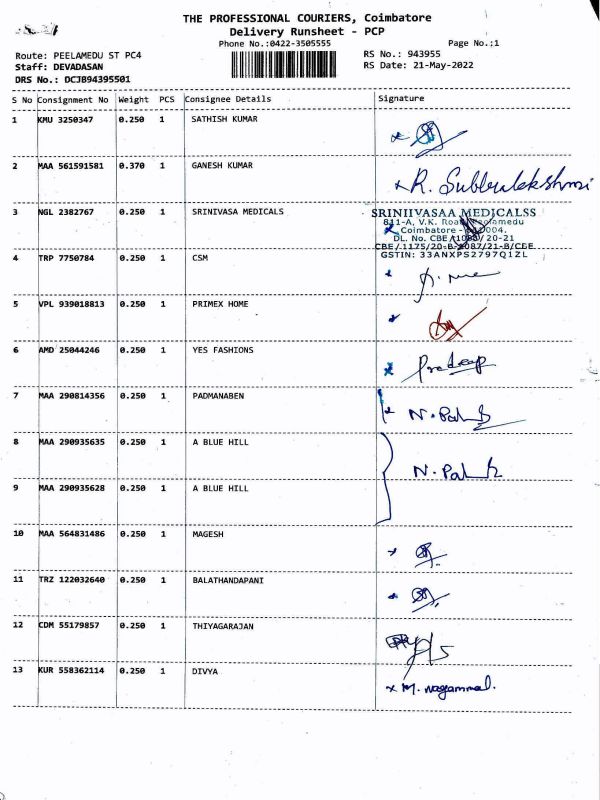 THE PROFESSIONAL COURIERS, Coimbatore
Delivery Runsheet - PCP
Phone No.:0422-3505555
Page No.:1
Route: PEELAMEDU ST PC4
RS No.: 943955
Staff: DEVADASAN
RS Date: 21-May-2022
DRS No.: DCJ894395501
S No Consignment No Weight PCS Consignee Details Signature
1 KMU 3250347 0.250 1 SATHISH KUMAR
2 MAA 561591581 0.370 1 GANESH KUMAR R. Subbulekshmi
3 NGL 2382767 0.250 1 SRINIVASA MEDICALS
SRINIIVASAA MEDICALSS
811-A, V.K. Road
Coimbatore
DL. No. CBE 20-21
GSTIN: 33ANXPS2797Q1ZL
4 TRP 7750784 0.250 1 CSM
5 VPL 939018813 0.250 1 PRIMEX HOME
6 AMD 25044246 0.250 1 YES FASHIONS Pradeep
7 MAA 290814356 0.250 1 PADMANABEN
8 MAA 290935635 0.250 1 A BLUE HILL
9 MAA 290935628 0.250 1 A BLUE HILL
10 MAA 564831486 0.250 1 MAGESH
11 TRZ 122032640 0.250 1 BALATHANDAPANI
12 CDM 55179857 0.250 1 THIYAGARAJAN
13 KUR 558362114 0.250 1 DIVYA M. Nagammal.